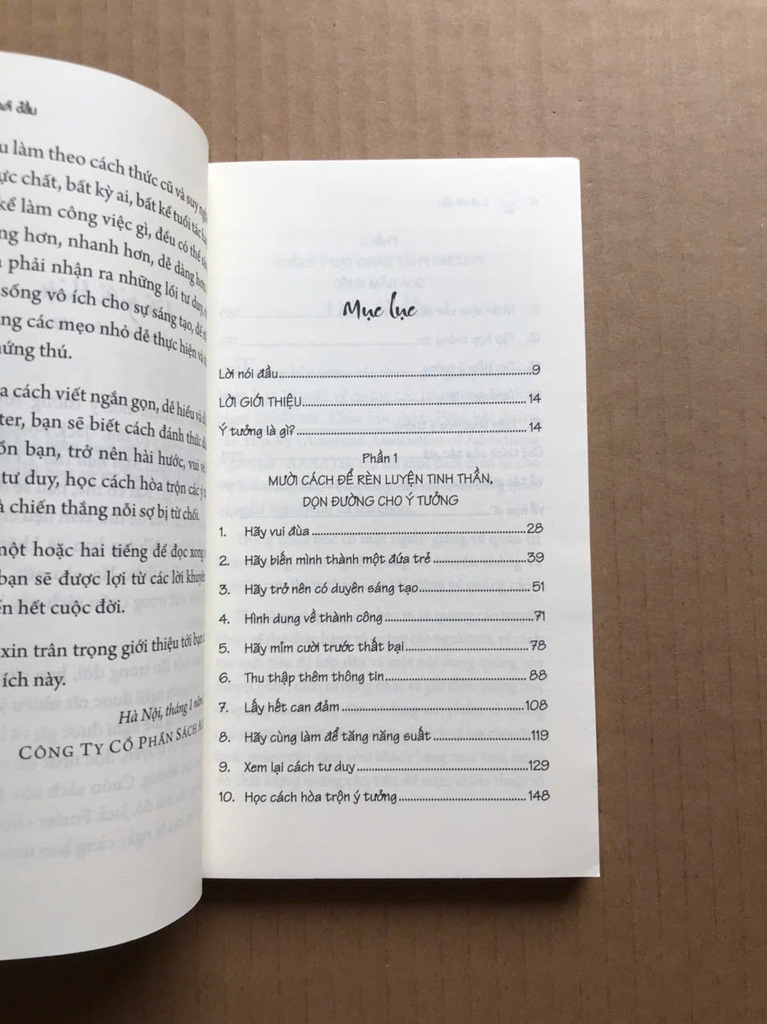 đầu
làm theo cách thức cũ và suy
chất, bất kỳ ai, bất kể tuổi tác
kể làm công việc gì, đều có thể
hơn, nhanh hơn, dễ dàng hơn
phải nhận ra những lối tư duy
sống vô ích cho sự sáng tạo, để
các mẹo nhỏ dễ thực hiện và
hứng thú.
cách viết ngắn gọn, dễ hiểu và
bạn sẽ biết cách đánh thức
bạn, trở nên hài hước, vui
tư duy, học cách hòa trộn các
chiến thắng nỗi sợ bị từ chối.
một hoặc hai tiếng để đọc xong
bạn sẽ được lợi từ các lời khuyên
hết cuộc đời.
xin trân trọng giới thiệu tới bạn
ích này.
Hà Nội, tháng 1 năm
CÔNG TY CỔ PHẦN SÁCH
Mục lục
Lời nói đầu 9
LỜI GIỚI THIỆU 14
Ý tưởng là gì? 14
Phần 1
MƯỜI CÁCH ĐỂ RÈN LUYỆN TINH THẦN,
DỌN ĐƯỜNG CHO Ý TƯỞNG
1. Hãy vui đùa 28
2. Hãy biến mình thành một đứa trẻ 39
3. Hãy trở nên có duyên sáng tạo 51
4. Hình dung về thành công 71
5. Hãy mỉm cười trước thất bại 78
6. Thu thập thêm thông tin 88
7. Lấy hết can đảm 108
8. Hãy cùng làm để tăng năng suất 119
9. Xem lại cách tư duy 129
10. Học cách hòa trộn ý tưởng 148